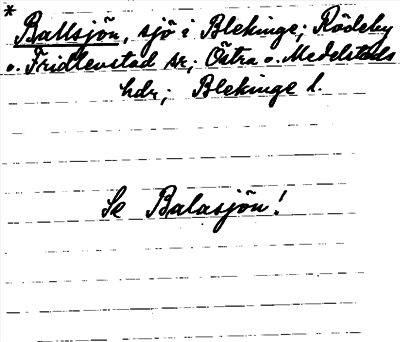 * Ballsjön, sjö i Blekinge; Rödeby
o. Fridlevstad sn; Östra o. Medelstads
hdr; Blekinge l.
Se Balasjön!